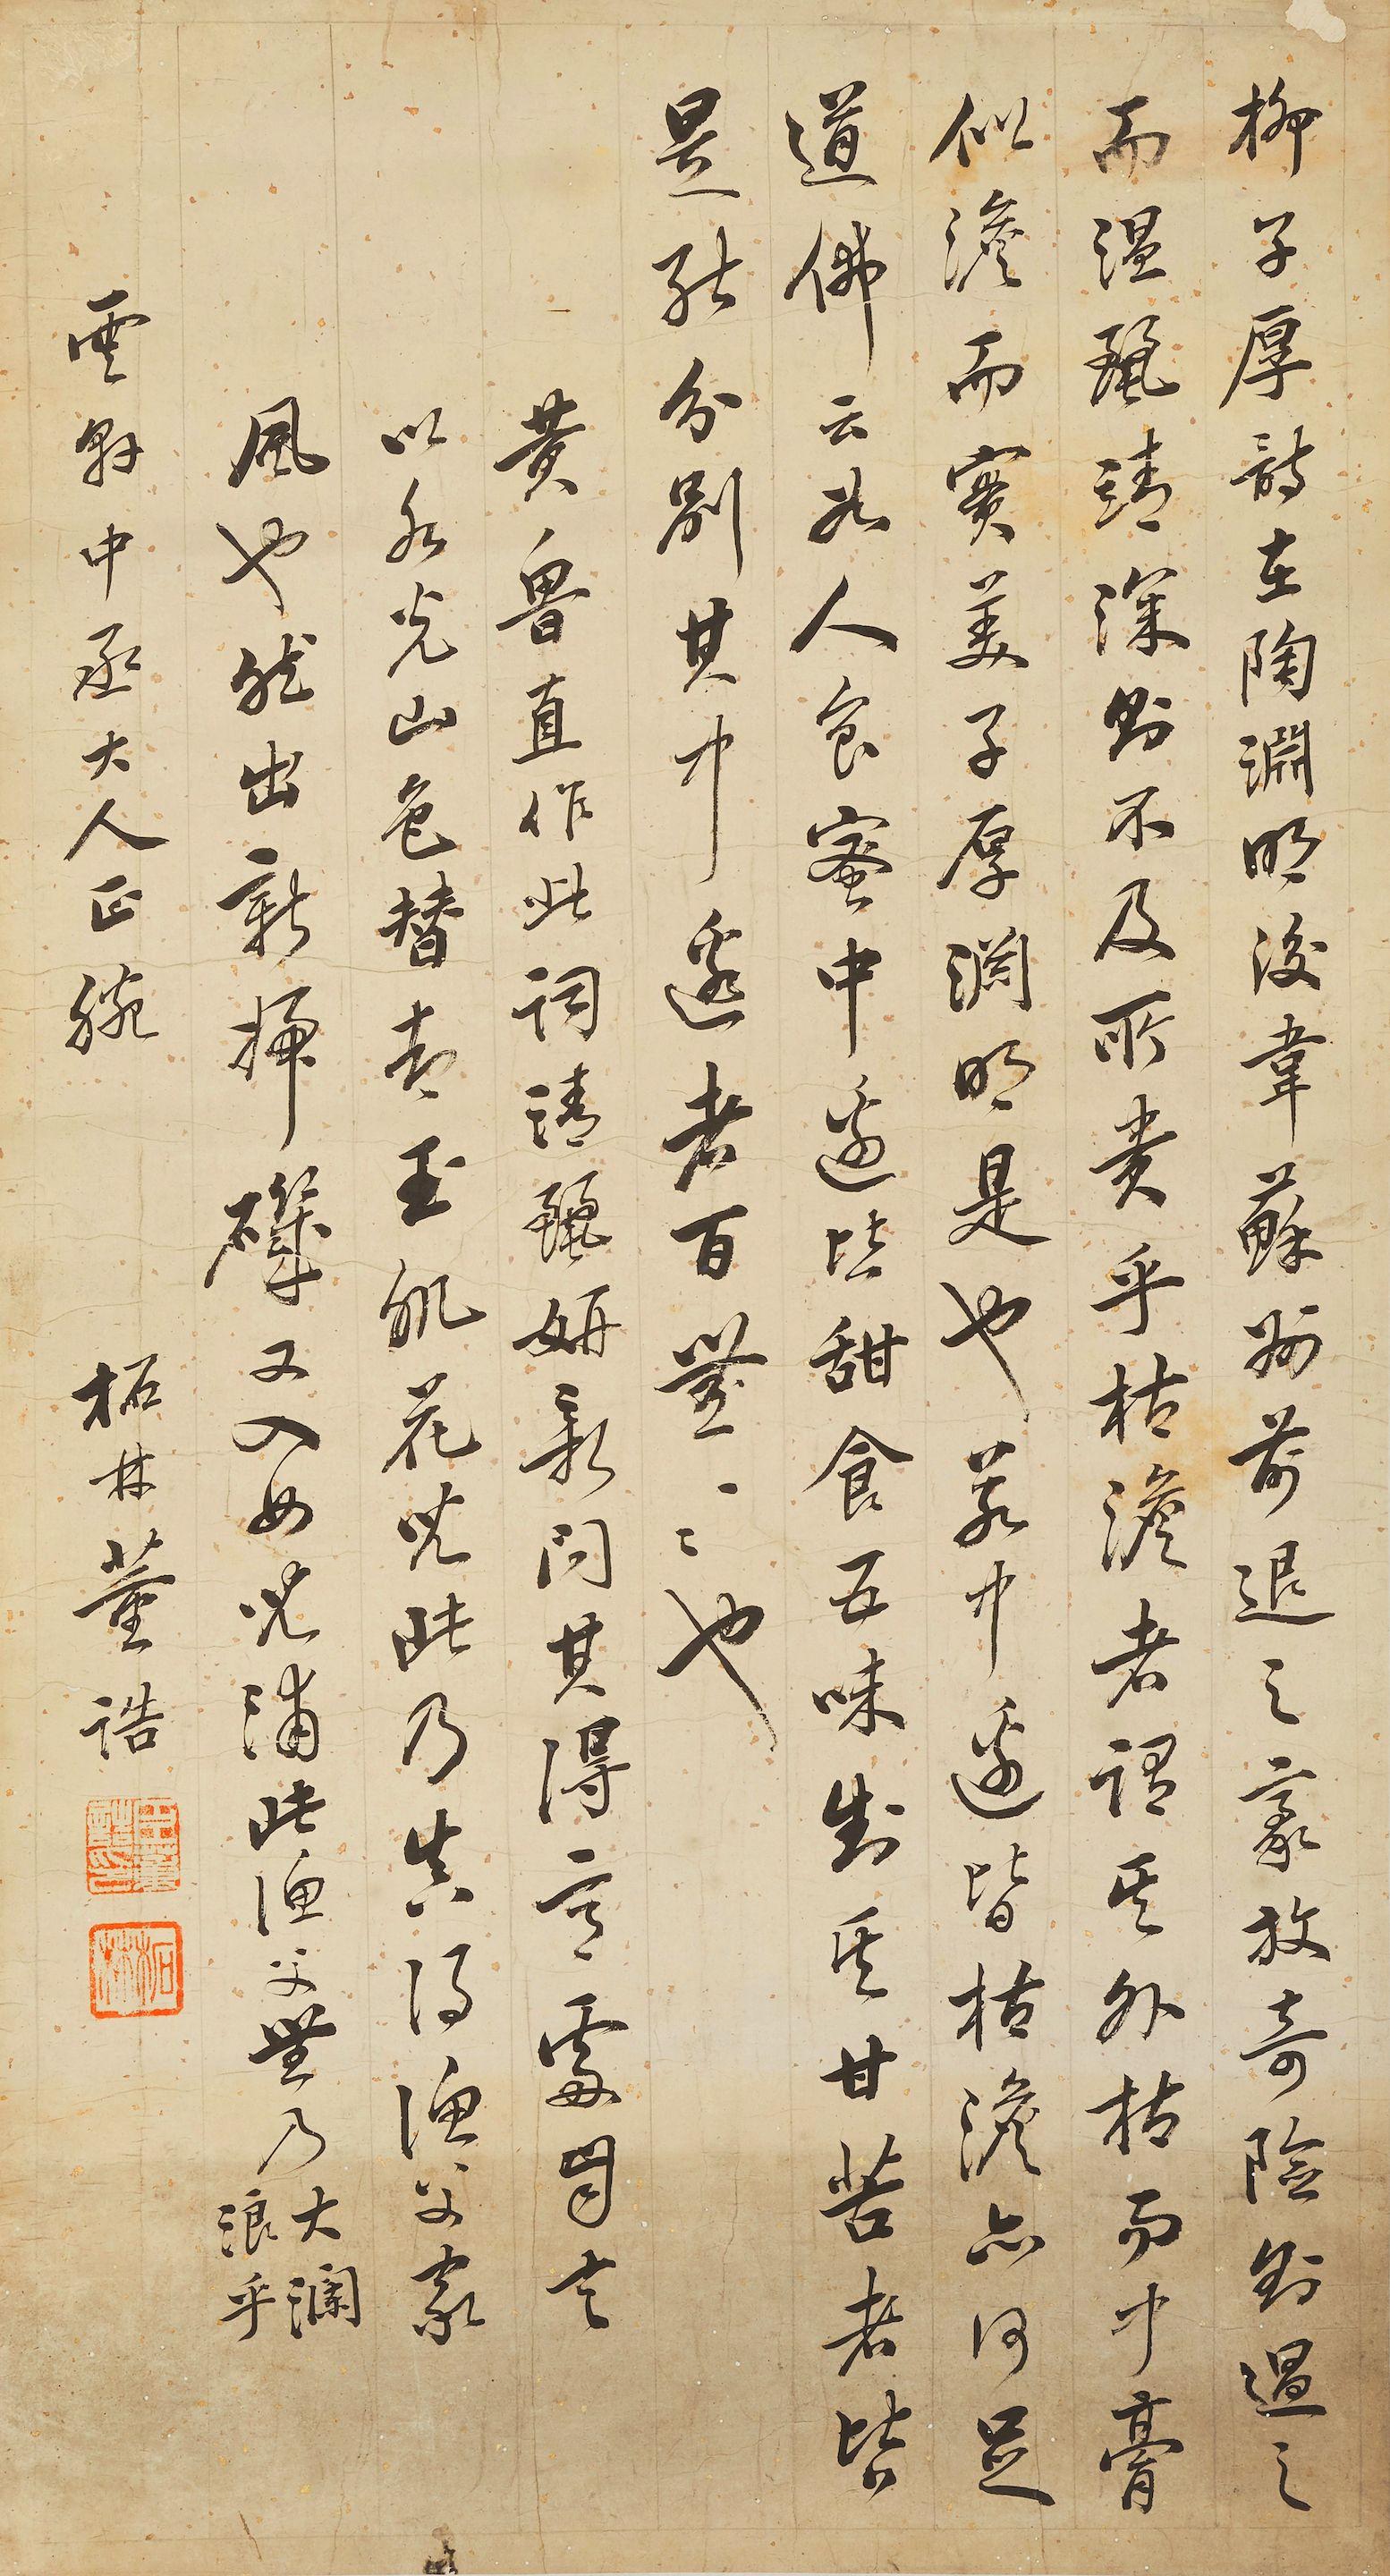 柳子厚詩在陶淵明後韋蘇州前退之豪放奇險則過之
而溫麗靖深則不及所貴乎枯澹者謂其外枯而中膏
似澹而實美子厚淵明是也若中邊皆枯澹亦何足
道佛云如人食蜜中邊皆甜食五味對其甘苦者皆
是能分別其中邊者百無一二也
黃魯直作此詞清麗妍新問其得意處自言
以水光山色替却玉肌花皃此乃真得漁父家
風也然出新婦磯又入女兒浦此漁父無乃
大瀾
浪乎
雲軒中丞大人正腕
柘林董誥
柘林